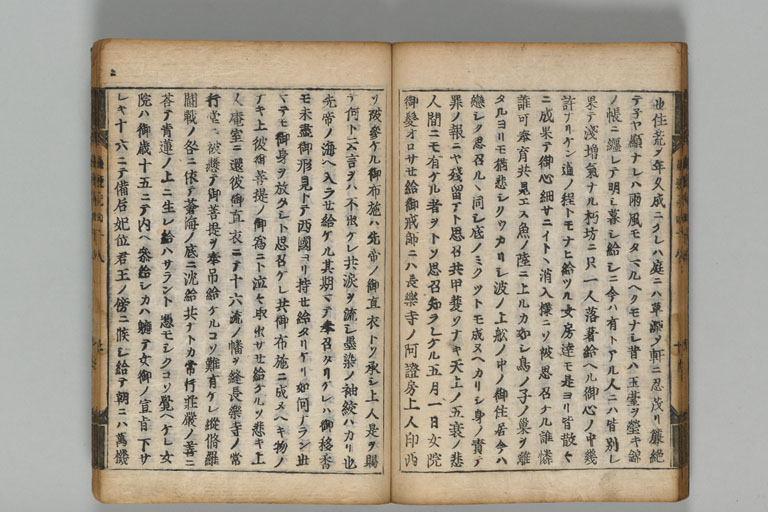 此住荒テ年久成ニケレハ庭ニハ草深ク軒ニ忍茂リ簾絶
テ子ヤ顕ナレハ雨風モタマルヘクモナシ昔ハ玉臺ヲ瑩キ錦
ノ帳ニ纏レテ明シ暮シ給シニ今ハ有トアル人ニハ皆別レ
果テ淺増氣ナル朽坊ニ只一人落著給ヘル御心ノ中幾
許ナリケン道ノ程トモナヒ給ツル女房達モ是ヨリ皆散々
ニ成果テ御心細サニイトヽ消入様ニソ被思召ケル誰憐
誰可奉育共見エス魚ノ陸ニ上ルカ如シ鳥ノ子ノ巣ヲ離
タルヨリモ猶悲シクウカリシ波ノ上舩ノ中ノ御住居今ハ
戀シク思召ルヽ同シ底ノミクツトモ成ヌヘカリシ身ノ責テ
罪ノ報ニヤ殘留テト思召共甲斐ソナキ天上ノ五衰ノ悲
人間ニモ有ケル者ヲトソ思召知ラレケル五月一日女院
御髪オロサセ給御戒師ニハ長樂寺ノ阿證房上人印西
ソ被參ケル御布施ハ先帝ノ御直衣トソ承シ上人是ヲ賜
テ何ト云言ヲハ不出ケレ共涙ヲ流シ墨染ノ袖絞ハカリ也
先帝ノ海ヘ入ラセ給ケル其期マテ奉召タリケレハ御移香
モ未盡御形見トテ西國ヨリ持セ給タリケリ如何ナラン世
マテモ御身ヲ放タシト思召ケレ共御布施ニ成ヌヘキ物ノ
ナキ上彼御菩提ノ御爲ニト泣々取出サセ給ケルソ悲キ上
人庵室ニ還彼御直衣ニテ十六流ノ幡ヲ縫長樂寺ノ常
行堂ニ被懸テ御菩提ヲ奉吊給ケルコソ難有ケレ縦脩羅
闘戰ノ咎ニ依テ蒼海ノ底ニ沈給共ナトカ常行荘嚴ノ善ニ
荅テ青蓮ノ上ニ生レ給ハサラント憑モシクコソ覺ヘケレ女
院ハ御歳十五ニテ内ヘ參給シカハ軈テ女御ノ宣旨下サ
レキ十六ニテ備后妃位君王ノ傍ニ候シ給テ朝ニハ萬機